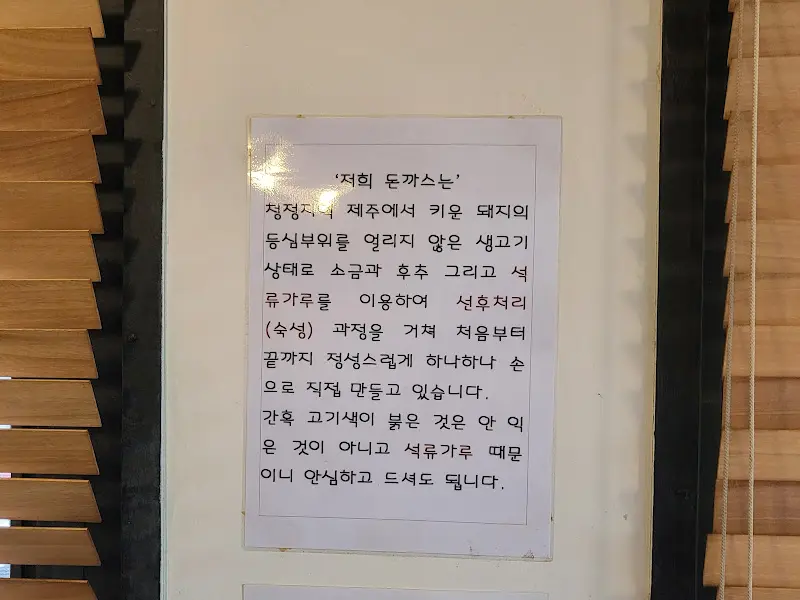 ‘저희 돈까스는’
청정지역 제주에서 키운 돼지의
등심부위를 얼리지 않은 생고기
상태로 소금과 후추 그리고 석
류가루를 이용하여 선후처리
(숙성) 과정을 거쳐 처음부터
끝까지 정성스럽게 하나하나 손
으로 직접 만들고 있습니다.
간혹 고기색이 붉은 것은 안 익
은 것이 아니고 석류가루 때문
이니 안심하고 드셔도 됩니다.